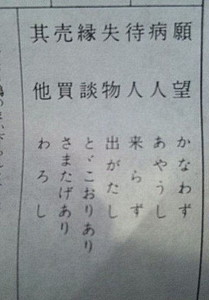 願望 かなわず
病人 あやうし
待人 来らず
失物 出がたし
縁談 とゞこおりあり
売買 さまたげあり
其他 わろし